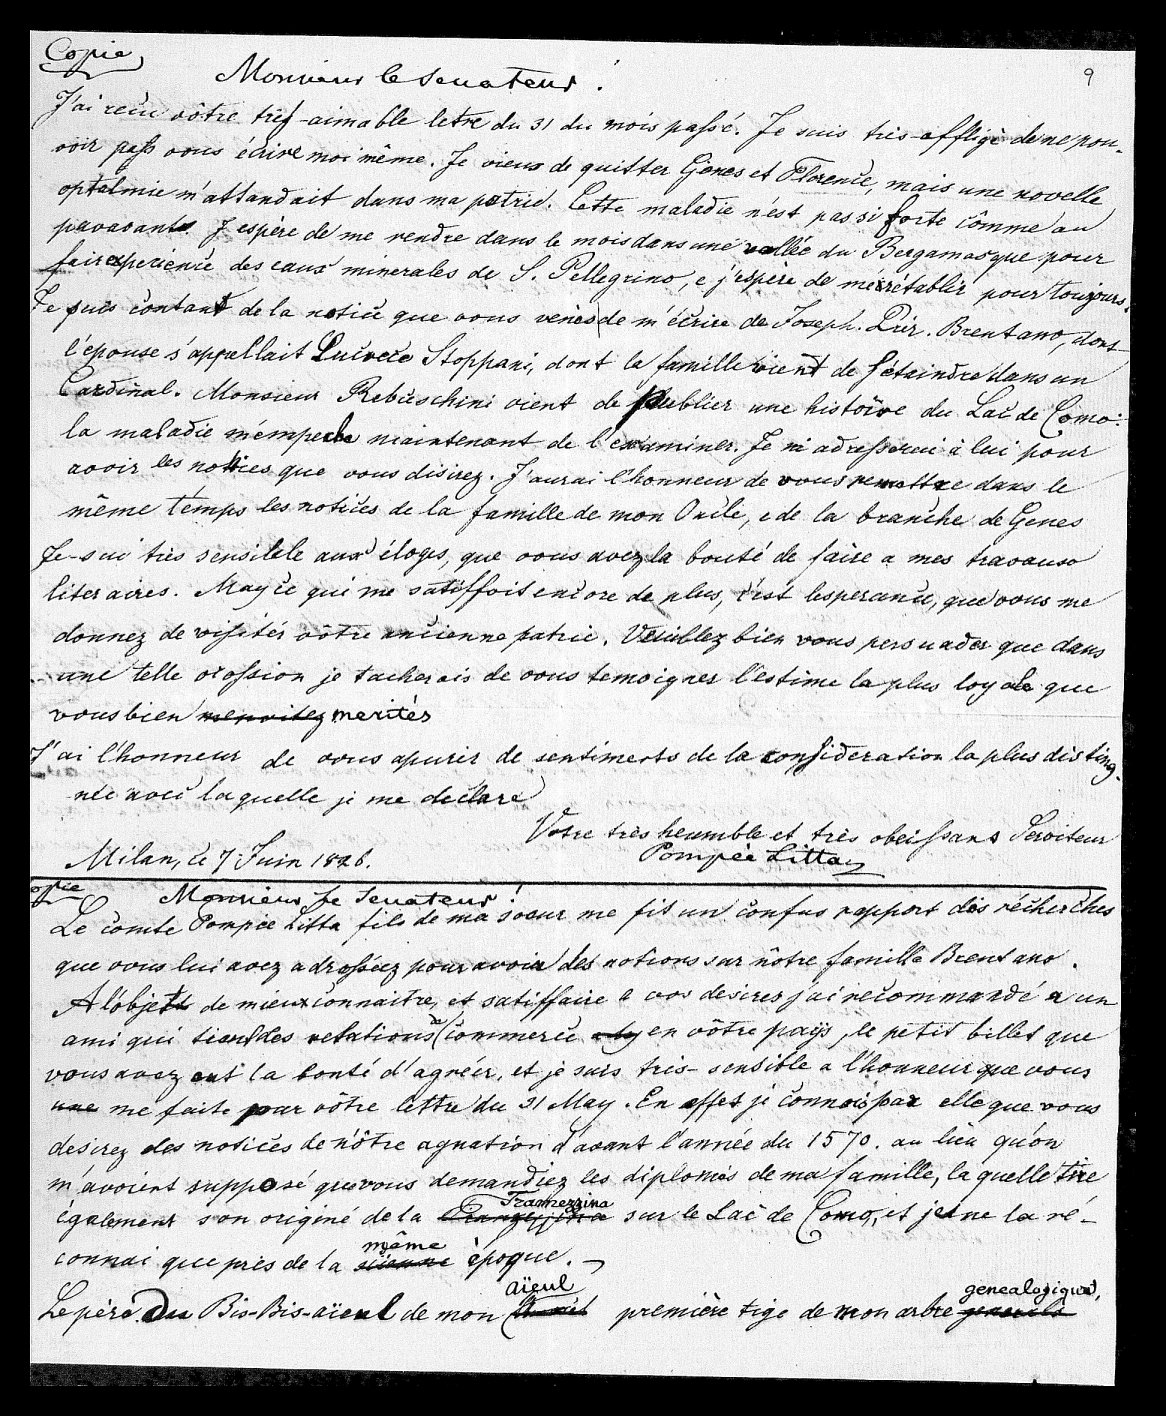 Copie
9
Monsieur le Senateur!
J'ai recu vôtre tres-aimable letre du 31 du mois passé. Je suis très-affligé de ne pou-
voir pass vous écrire moi même. Je viens de quitter Gênes et Florence, mais une novelle
optalmie m'attandait dans ma patrie. Cette maladie n'est pas si forte cômme au
paravant. J'espère de me rendre dans le mois dans une vallée du Bergamasque pour
faire experience des eaux minerales de S. Pellegrino, e j'espere de me rétablir pour toujours.
Je suis contant de la notice que vous venès de m'écrire de Joseph. Brentano, dont
l'épouse s'appellait Lucrece Stoppani, dont la famille vient de s'éteindre dans un
Cardinal. Monsieur Rebuschini vient de publier une histoire du Lac de Como:
la maladie m'empeche maintenant de l'examiner. Je m'adresserai à lui pour
avoir les notices que vous disirez. J'aurai l'honneur de vous remettre dans le
même temps les notices de la famille de mon Oncle, e de la branche de Genes
Je-sui très sensible aux éloges, que vous avez la bouté de faire a mes travaux
literaires. May ce qui me satisfoit encore de plus, c'est l'esperance, que vous me
donnez de visiter vôtre ancienne patrie. Veuillez bien vous persuader que dans
une telle ocassion je tacherais de vous temoigner l'estime la plus loyale que
vous bien meritès
J'ai l'honneur de vous asurer de sentiments de la consideration la plus disting-
née avec laquelle je me declare
Votre très heumble et très obeissant Serviteur
Pompée Litta
Milan, le 7 Juin 1826.
Copie
Monsieur le Senateur!
Le comte Pompée Litta fils de ma soeur me fit un confus rapport des récherches
que vous lui avez adresséez pour avoir des notions sur nôtre famille Brentano.
A l'objet de mieux connaitre, et satisfaire a vos desires j'ai recommandé a un
ami qui tient des relations de commerce en vôtre pays, le petit billet que
vous avez eut la bonté d'agréer, et je suis tris-sensible a l'honneur que vous
me faite pour vôtre lettre du 31 May. En effet je connois par elle que vous
desirez des notices de nôtre agnation d'avant l'année du 1570. au lieu qu'on
m'avoient supposé que vous demandiez les diplomes de ma famille, la quelle tire
également son origine de la Tramezzina sur le Lac de Como, et je ne la ré-
connai que près de la même époque.
Le père du Bis-Bis-aïeul de mon aïeul première tige de mon arbre genealogique,